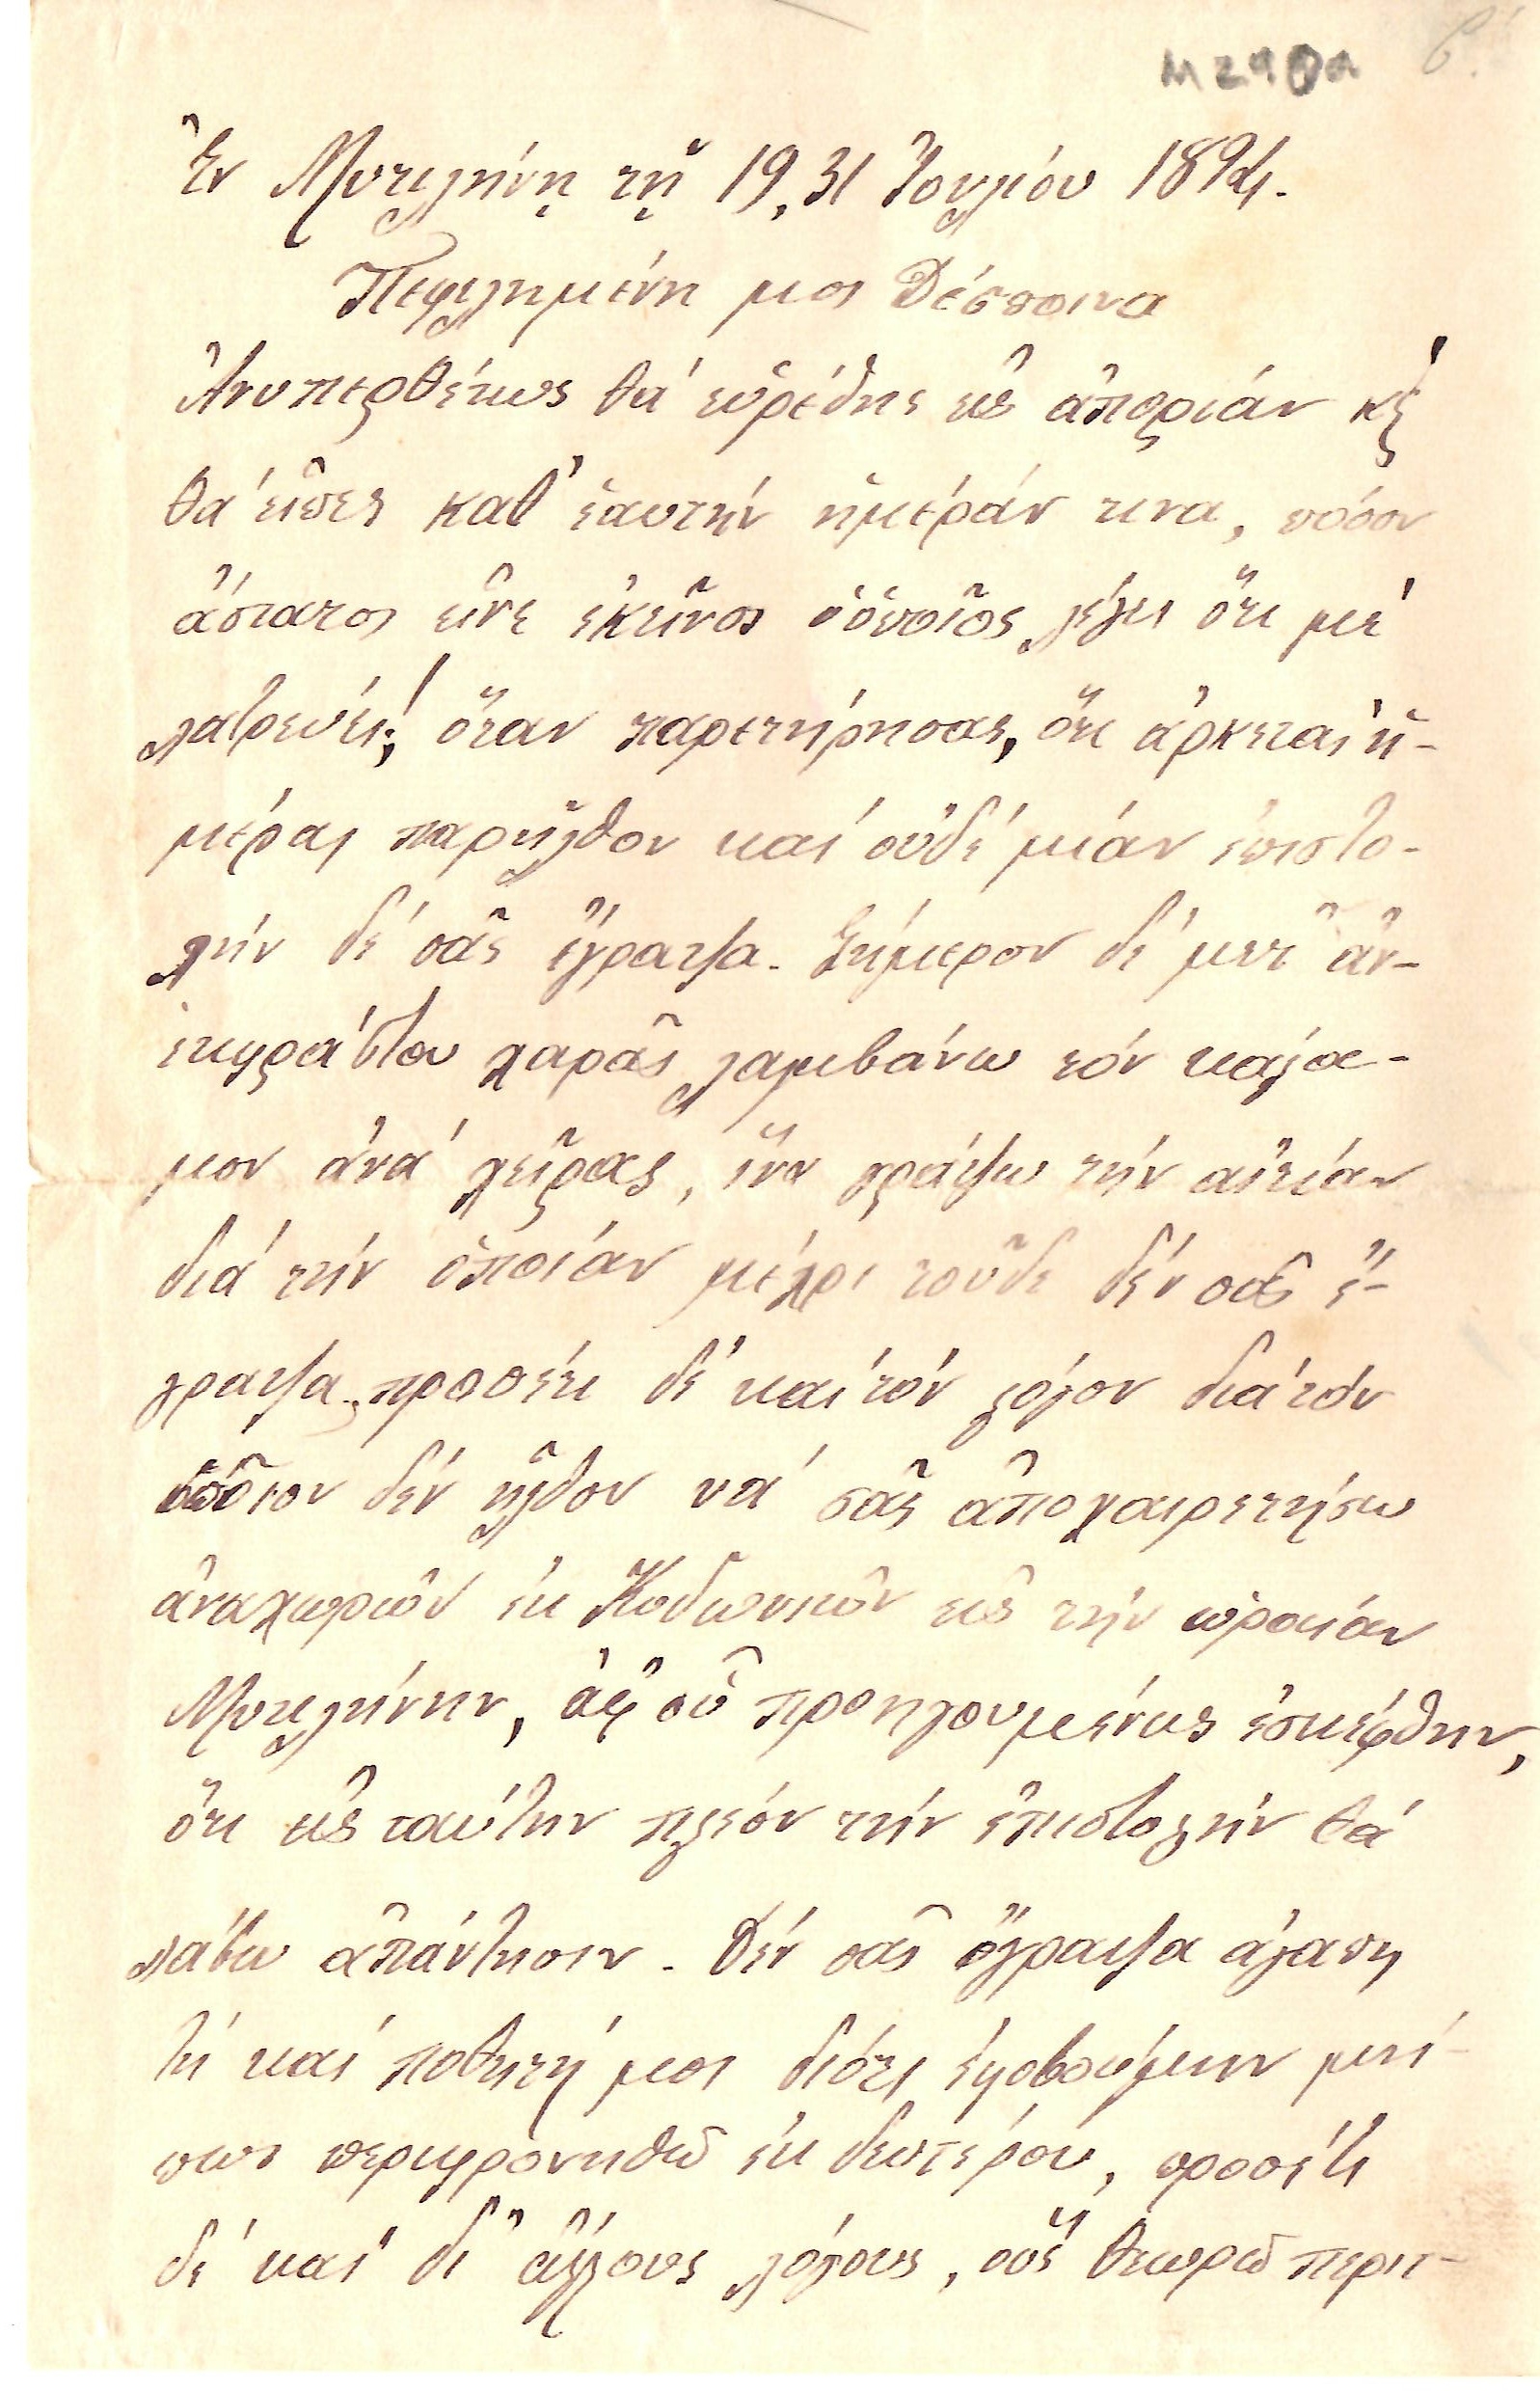 M290a
6.
Ἐν Μυτιλήνῃ τῇ 19,31 Ἰουλίου 1894.
Πεφιλημένη μοι Δέσποινα
Ἀνυπερθέτως θά εὑρέθης εἰς ἀπορίαν κζ
θά εἶπες καθ' ἑαυτήν ἡμέραν τινα, πόσον
ἄστατος εἶνε ἐκεῖνος ὁ ὁποῖος λέγει ὅτι μέ
λατρεύει! ὅταν παρετήρησας, ὅτι ἀρκεταί ἡ-
μέραι παρῆλθον καί οὐδέ μίαν ἐπιστο-
λήν δέ σᾶς ἔγραψα. Σήμερον δέ μετ' ἀν-
εκφράστου χαρᾶς λαμβάνω τόν καλα-
μον ἀνά χεῖρας, ἵνα γράψω τήν αἰτίαν
διά τήν ὁποίαν μέχρι τοῦδε δέν σᾶς ἔ-
γραψα, προσέτι δέ καί τόν λόγον διά τόν
ὁποῖον δέν ἦλθον νά σᾶς ἀποχαιρετήσω
ἀναχωρῶν ἐκ Κυδωνιῶν εἰς τήν ὡραίαν
Μυτιλήνην, ἀφ' οὗ προηγουμένως ἐσκέφθην,
ὅτι εἰς ταύτην πλέον τήν ἐπιστολήν θά
λάβω ἀπάντησιν. Δέν σᾶς ἔγραψα ἀγαπη
τή καί ποθητή μοι διότι ἐφοβούμην μή-
πως περιφρονηθῶ ἐκ δευτέρου, προσέτι
δέ καί δι' ἄλλους λόγους, οὕς θεωρῶ περιτ-